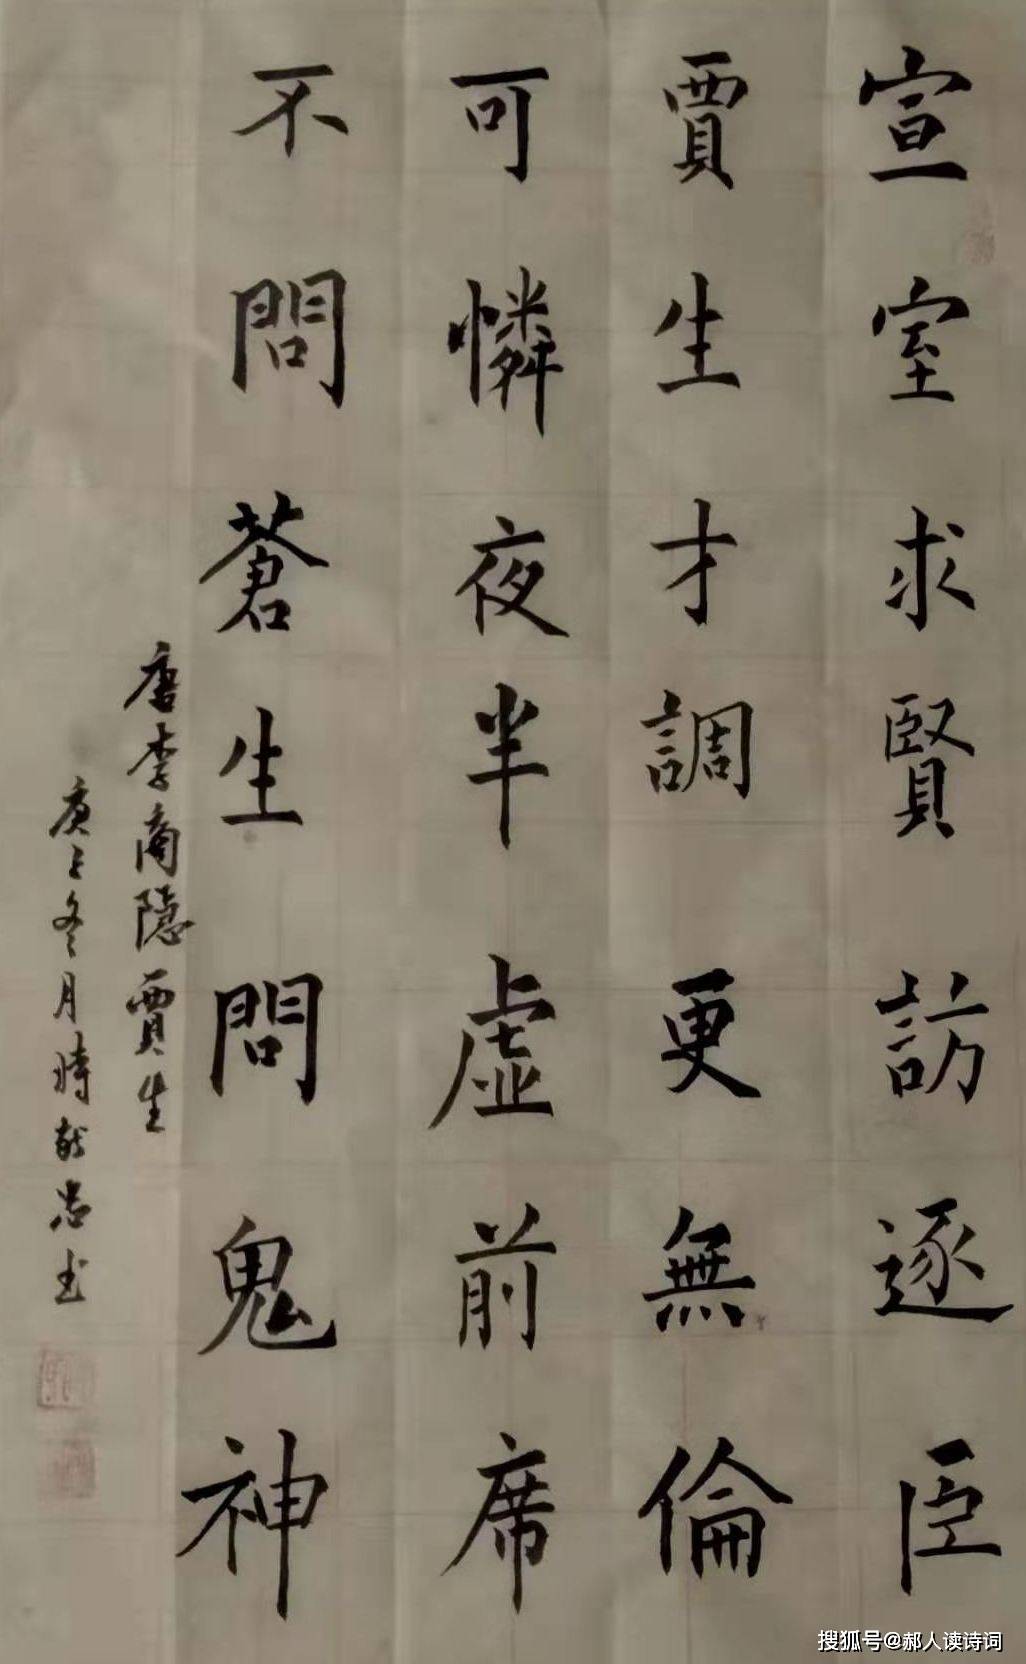 宣室求賢訪逐臣
賈生才調更無倫
可憐夜半虛前席
不問蒼生問鬼神
唐李商隱賈生
庚子冬月時獻忠書
搜狐号@郝人读诗词